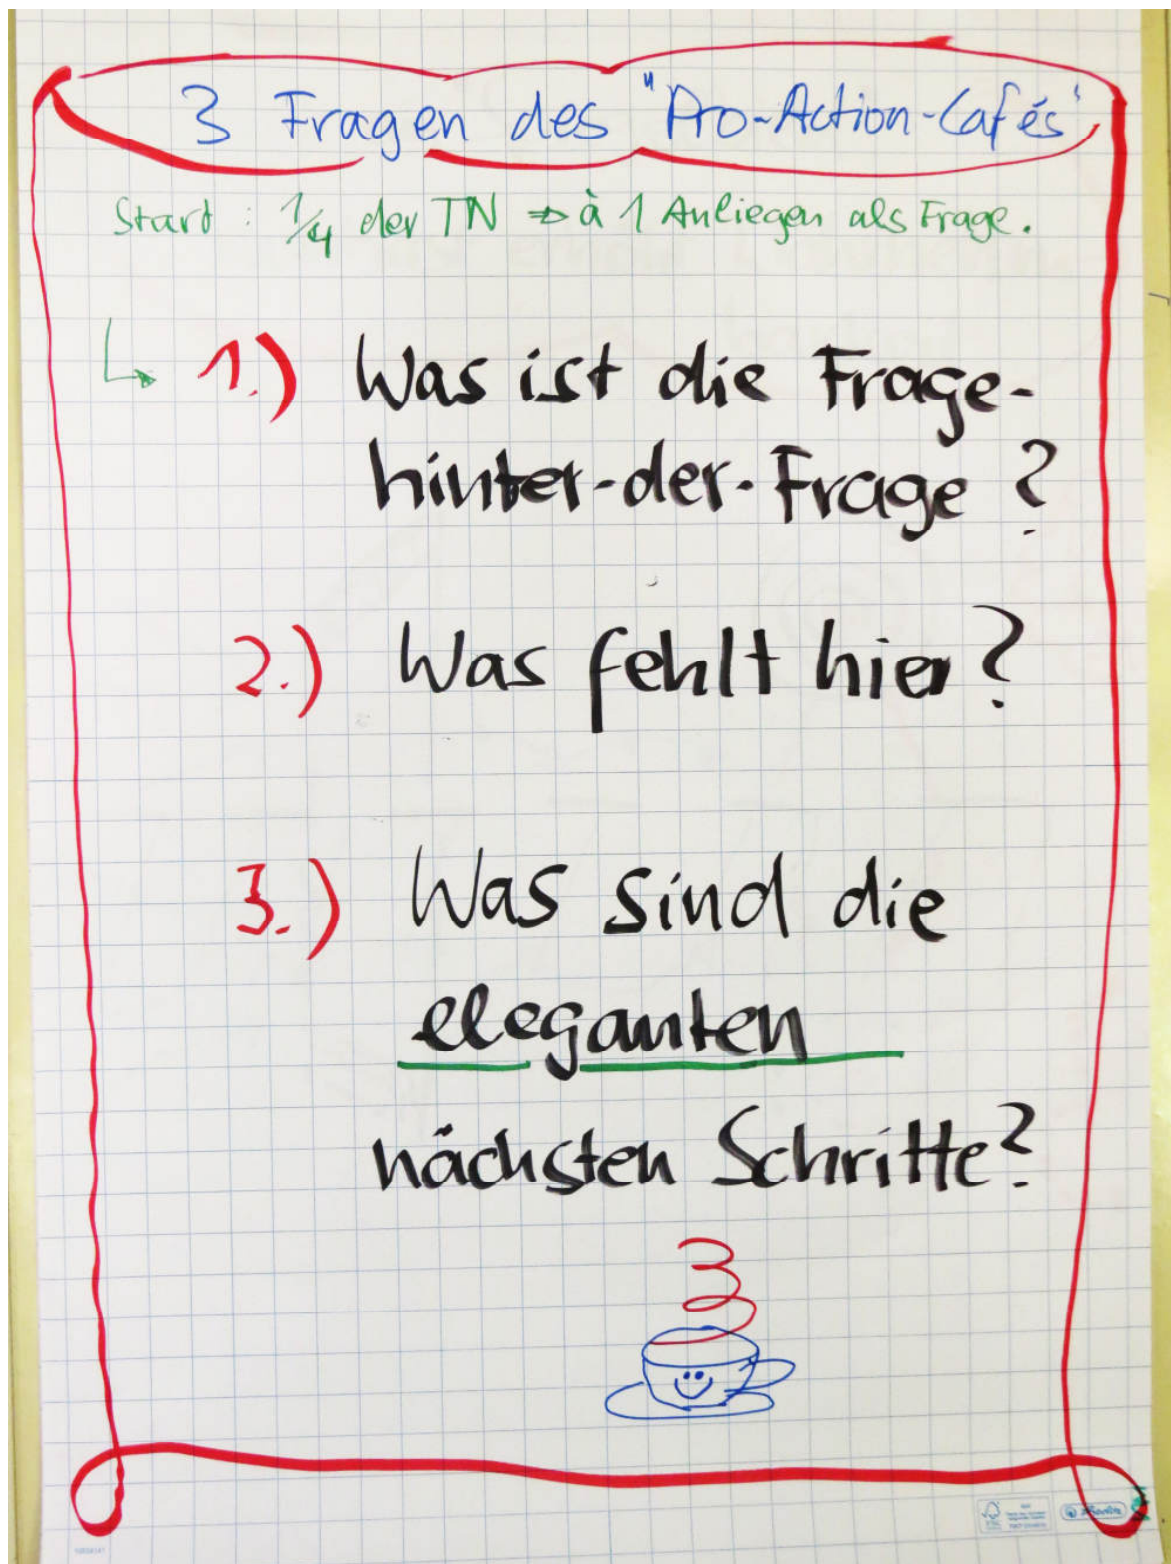 3 Fragen des "Pro-Action-Cafés"
Start : 1/4 der TN ⇒ à 1 Anliegen als Frage.
↳ 1.) Was ist die Frage-
hinter-der-Frage ?
2.) Was fehlt hier ?
3.) Was sind die
eleganten
nächsten Schritte ?
FSC